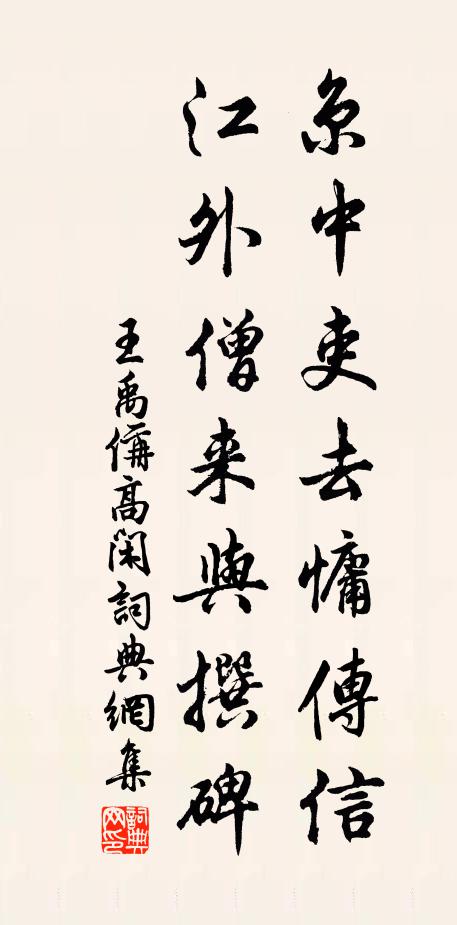 京中吏去慵傳信
江外僧来與撰碑
王禹偁高閑詞典網集
詞典网印